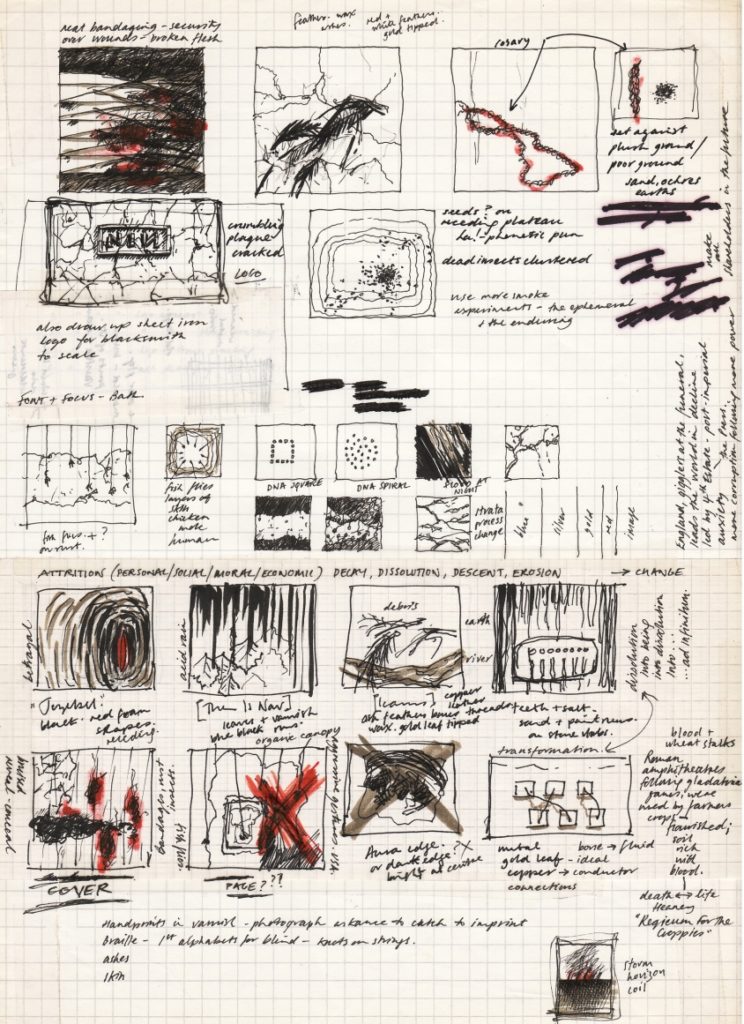 neat bandaging - security
over wounds - broken flesh
feathers. wax
ashes.
red +
white feathers.
gold tipped.
rosary
set against
plush ground /
poor ground
sand, ochres
earths
crumbling
plaque
cracked
LOGO
seeds? on
receding plateau
ha! - phonetic pun
dead insects clustered
use more smoke
experiments - the ephemeral
+ the enduring
also draw up sheet iron
logo for blacksmith
to scale
FONT + FOCUS - BATH
England, gigglers at the funeral,
leads the world in decline
led by 4th Estate - post-imperial
anxiety
the Press.
more corruption following more power
make
all
shareholders in the future
on rust.
fish flies
layers of
skin
chicken
mole
human
DNA SQUARE
DNA SPIRAL
BLOOD AT
NIGHT
strata
process
change
blue
silver
gold
red
image
ATTRITIONS (PERSONAL/SOCIAL/MORAL/ECONOMIC) DECAY, DISSOLUTION, DESCENT, EROSION → CHANGE
betrayal
"Jezebel"
black. red foam
shapes.
receding.
acid rain
[Then Is Now]
leaves + varnish
black runs.
organic canopy
debris
earth
river
[Icarus]
copper
leather
ash feathers bones threads
wax. gold leaf tipped
teeth + salt.
sand + paint runs.
on stone slabs.
dissolution
into being
into dissolution
into...
...ad infinitum.
COVER
bandages, rust
insects.
PAGE??!
Aura edge.
or dark edge?
bright at centre
transformation.
metal
bone → fluid
gold leaf - ideal
copper → conductor
connections
blood +
wheat stalks
Roman
amphitheatres
following gladiatorial
games, were
used by farmers
crops
flourished;
soil
rich
with
blood.
death ↔ life
Heaney
"Requiem For The
Croppies"
Handprints in varnish - photograph askance to catch to imprint
Braille - 1st alphabets for blind - knots on strings.
ashes
skin
storm
horizon
coil